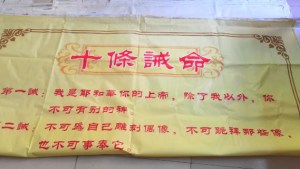 十條誡命
第一誡 我是耶和華你的上帝。除了我以外，你
不可有别的神
二誡 不可爲自己雕刻偶像，不可跪拜那些像，
也不可事奉它